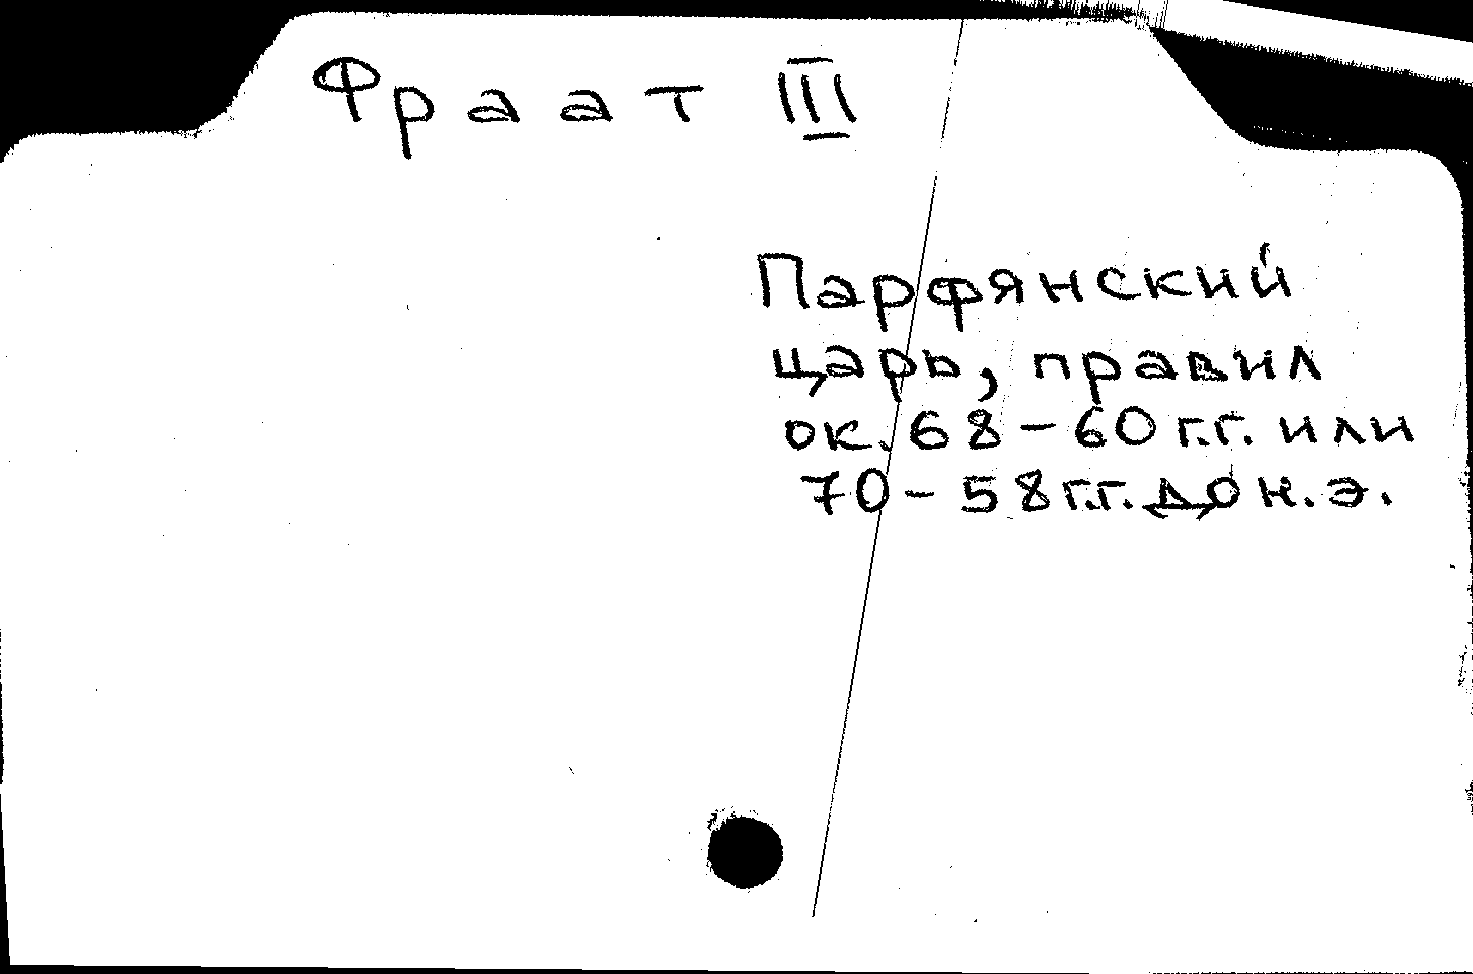 Фраат III
Парфянский
царь, правил
ок. 68-60 г.г. или
70-58 г.г. до н.э.